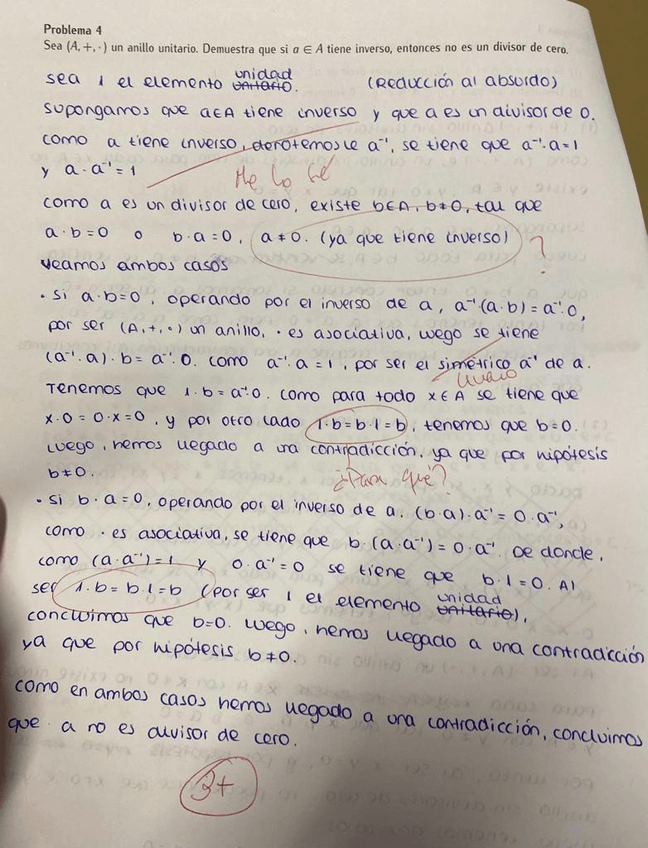 Problema 4
Sea (A, +, ·) un anillo unitario. Demuestra que si a ∈ A tiene inverso, entonces no es un divisor de cero.
sea 1 el elemento unitario unidad. (Reducción al absurdo)
supongamos que a∈A tiene inverso y que a es un divisor de 0.
como a tiene inverso, denotemosle a⁻¹, se tiene que a⁻¹·a=1
y a·a⁻¹=1
Me lo sé
como a es un divisor de cero, existe b∈A, b≠0, tal que
a·b=0 o b·a=0, a≠0. (ya que tiene inverso) ?
veamos ambos casos
· si a·b=0, operando por el inverso de a, a⁻¹·(a·b)=a⁻¹·0,
por ser (A,+,·) un anillo, · es asociativa, luego se tiene
(a⁻¹·a)·b=a⁻¹·0. como a⁻¹·a=1, por ser el simétrico a⁻¹ de a.
Tenemos que 1·b=a⁻¹·0. como para todo x∈A se tiene que
x·0=0·x=0, y por otro lado 1·b=b·1=b, tenemos que b=0.
luego, hemos llegado a una contradicción, ya que por hipótesis
b≠0.
¿Para qué?
· si b·a=0, operando por el inverso de a, (b·a)·a⁻¹=0·a⁻¹,
como · es asociativa, se tiene que b·(a·a⁻¹)=0·a⁻¹. De donde,
como (a·a⁻¹)=1 y 0·a⁻¹=0 se tiene que b·1=0. Al
ser 1·b=b·1=b (por ser 1 el elemento unitario unidad),
concluimos que b=0. luego, hemos llegado a una contradicción
ya que por hipótesis b≠0.
como en ambos casos hemos llegado a una contradicción, concluimos
que a no es divisor de cero.
3+